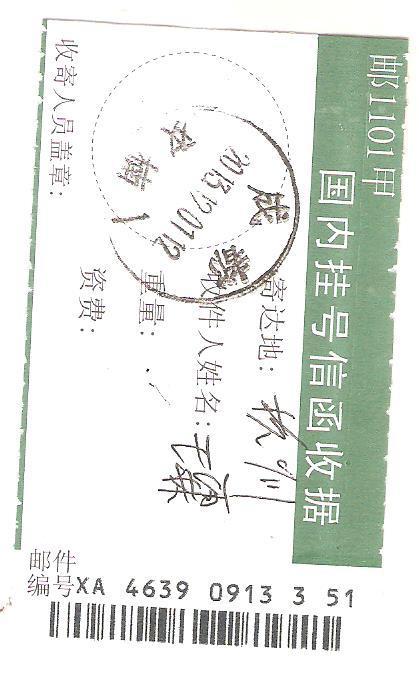 邮1101甲
国内挂号信函收据
寄达地：杭州
收件人姓名：王
重量：
资费：
收寄人员盖章：
成
2013.12.01.12
邮件
编号XA 4639 0913 3 51